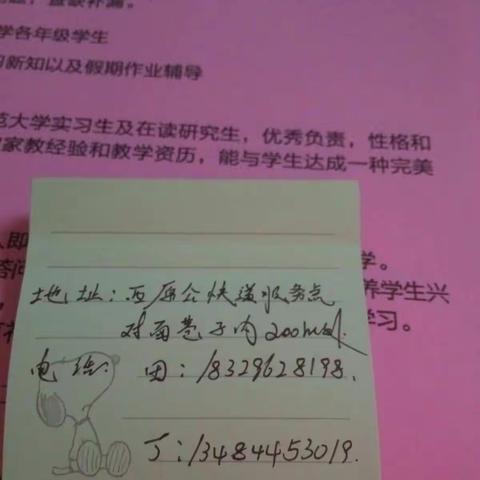 学各年级学生
习新知以及假期作业辅导
范大学实习生及在读研究生，优秀负责，性格和
家教经验和教学资历，能与学生达成一种完美
学。
养学生兴
学习。
地址：西原公快递服务点
对面巷子内200m处.
电话：田：18329628198.
丁：13484453019.